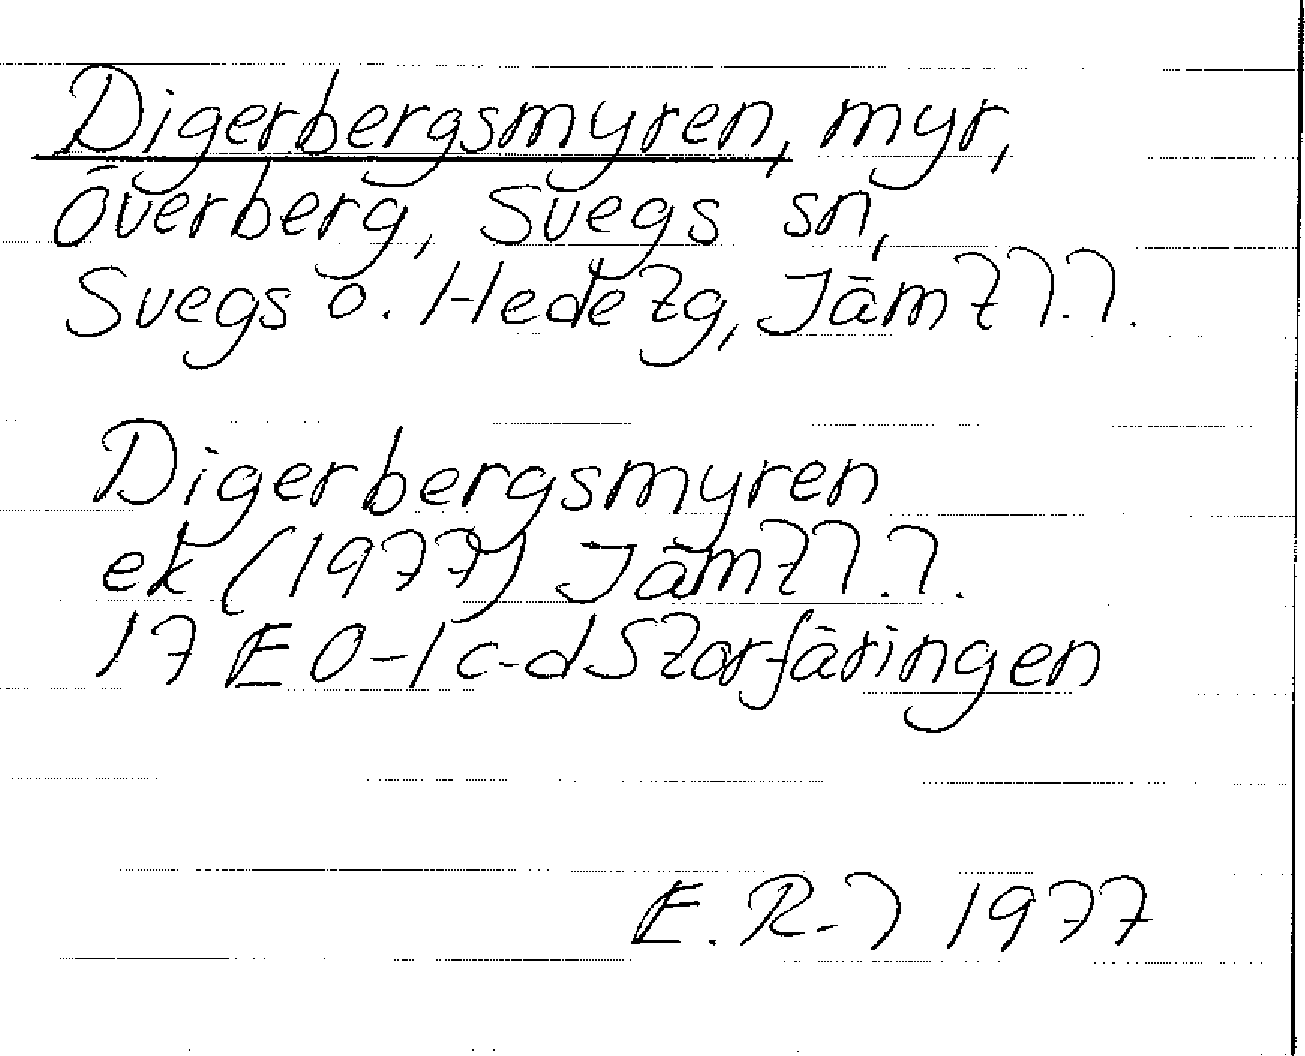 Digerbergsmyren, myr,
Överberg, Svegs sn,
Svegs o. Hede tg, Jämtl.l.
Digerbergsmyren
ek (1977) Jämtl.l.
17 E 0-1 c-d Storfäringen
E. R-l 1977